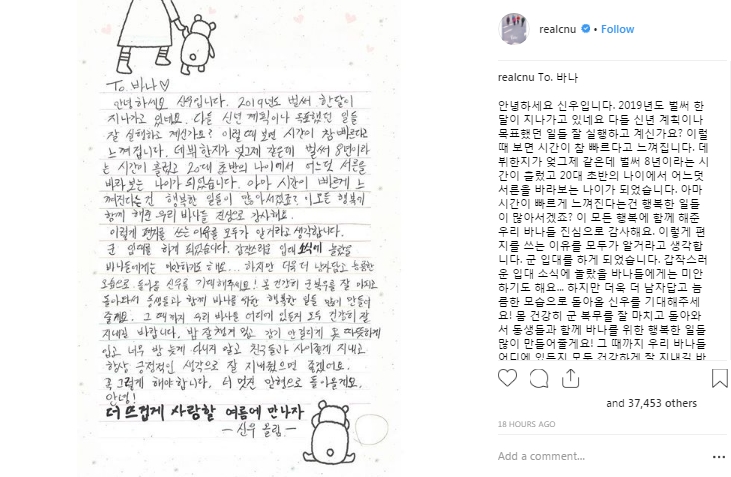 To. 바나♡
안녕하세요 신우입니다. 2019년도 벌써 한달이
지나가고 있네요. 다들 신년 계획이나 목표했던 일들
잘 실행하고 계신가요? 이럴 때 보면 시간이 참 빠르다고
느껴집니다. 데뷔한지가 엊그제 같은데 벌써 8년이라
는 시간이 흘렀고 20대 초반의 나이에서 어느덧 서른을
바라보는 나이가 되었습니다. 아마 시간이 빠르게 느
껴진다는건 행복한 일들이 많아서겠죠? 이 모든 행복에
함께 해준 우리 바나들 진심으로 감사해요.
이렇게 편지를 쓰는 이유를 모두가 알거라고 생각합니다.
군 입대를 하게 되었습니다. 갑작스러운 입대 소식에 놀랐을
바나들에게는 미안하기도 해요... 하지만 더욱 더 남자답고 늠름한
모습으로 돌아올 신우를 기대해주세요! 몸 건강히 군복무를 잘 마치고
돌아와서 동생들과 함께 바나를 위한 행복한 일들 많이 만들어
줄게요. 그 때까지 우리 바나들 어디에 있든지 모두 건강히 잘
지내길 바랍니다. 밥 잘 챙겨 먹고 감기 안걸리게 옷 따뜻하게
입고 너무 밤 늦게 다니지 말고 친구들과 사이좋게 지내고
항상 긍정적인 생각으로 잘 지내줬으면 좋겠어요.
꼭 그렇게 해야합니다. 더 멋진 인형으로 돌아올게요.
안녕!
더 뜨겁게 사랑할 여름에 만나자
- 신우 올림 -
realcnu • Follow
realcnu To. 바나
안녕하세요 신우입니다. 2019년도 벌써 한
달이 지나가고 있네요 다들 신년 계획이나
목표했던 일들 잘 실행하고 계신가요? 이럴
때 보면 시간이 참 빠르다고 느껴집니다. 데
뷔한지가 엊그제 같은데 벌써 8년이라는 시
간이 흘렀고 20대 초반의 나이에서 어느덧
서른을 바라보는 나이가 되었습니다. 아마
시간이 빠르게 느껴진다는건 행복한 일들
이 많아서겠죠? 이 모든 행복에 함께 해준
우리 바나들 진심으로 감사해요. 이렇게 편
지를 쓰는 이유를 모두가 알거라고 생각합
니다. 군 입대를 하게 되었습니다. 갑작스러
운 입대 소식에 놀랐을 바나들에게는 미안
하기도 해요... 하지만 더욱 더 남자답고 늠
름한 모습으로 돌아올 신우를 기대해주세
요! 몸 건강히 군 복무를 잘 마치고 돌아와
서 동생들과 함께 바나를 위한 행복한 일들
많이 만들어줄게요! 그 때까지 우리 바나들
어디에 있든지 모두 건강하게 잘 지내길 바
and 37,453 others
18 HOURS AGO
Add a comment...